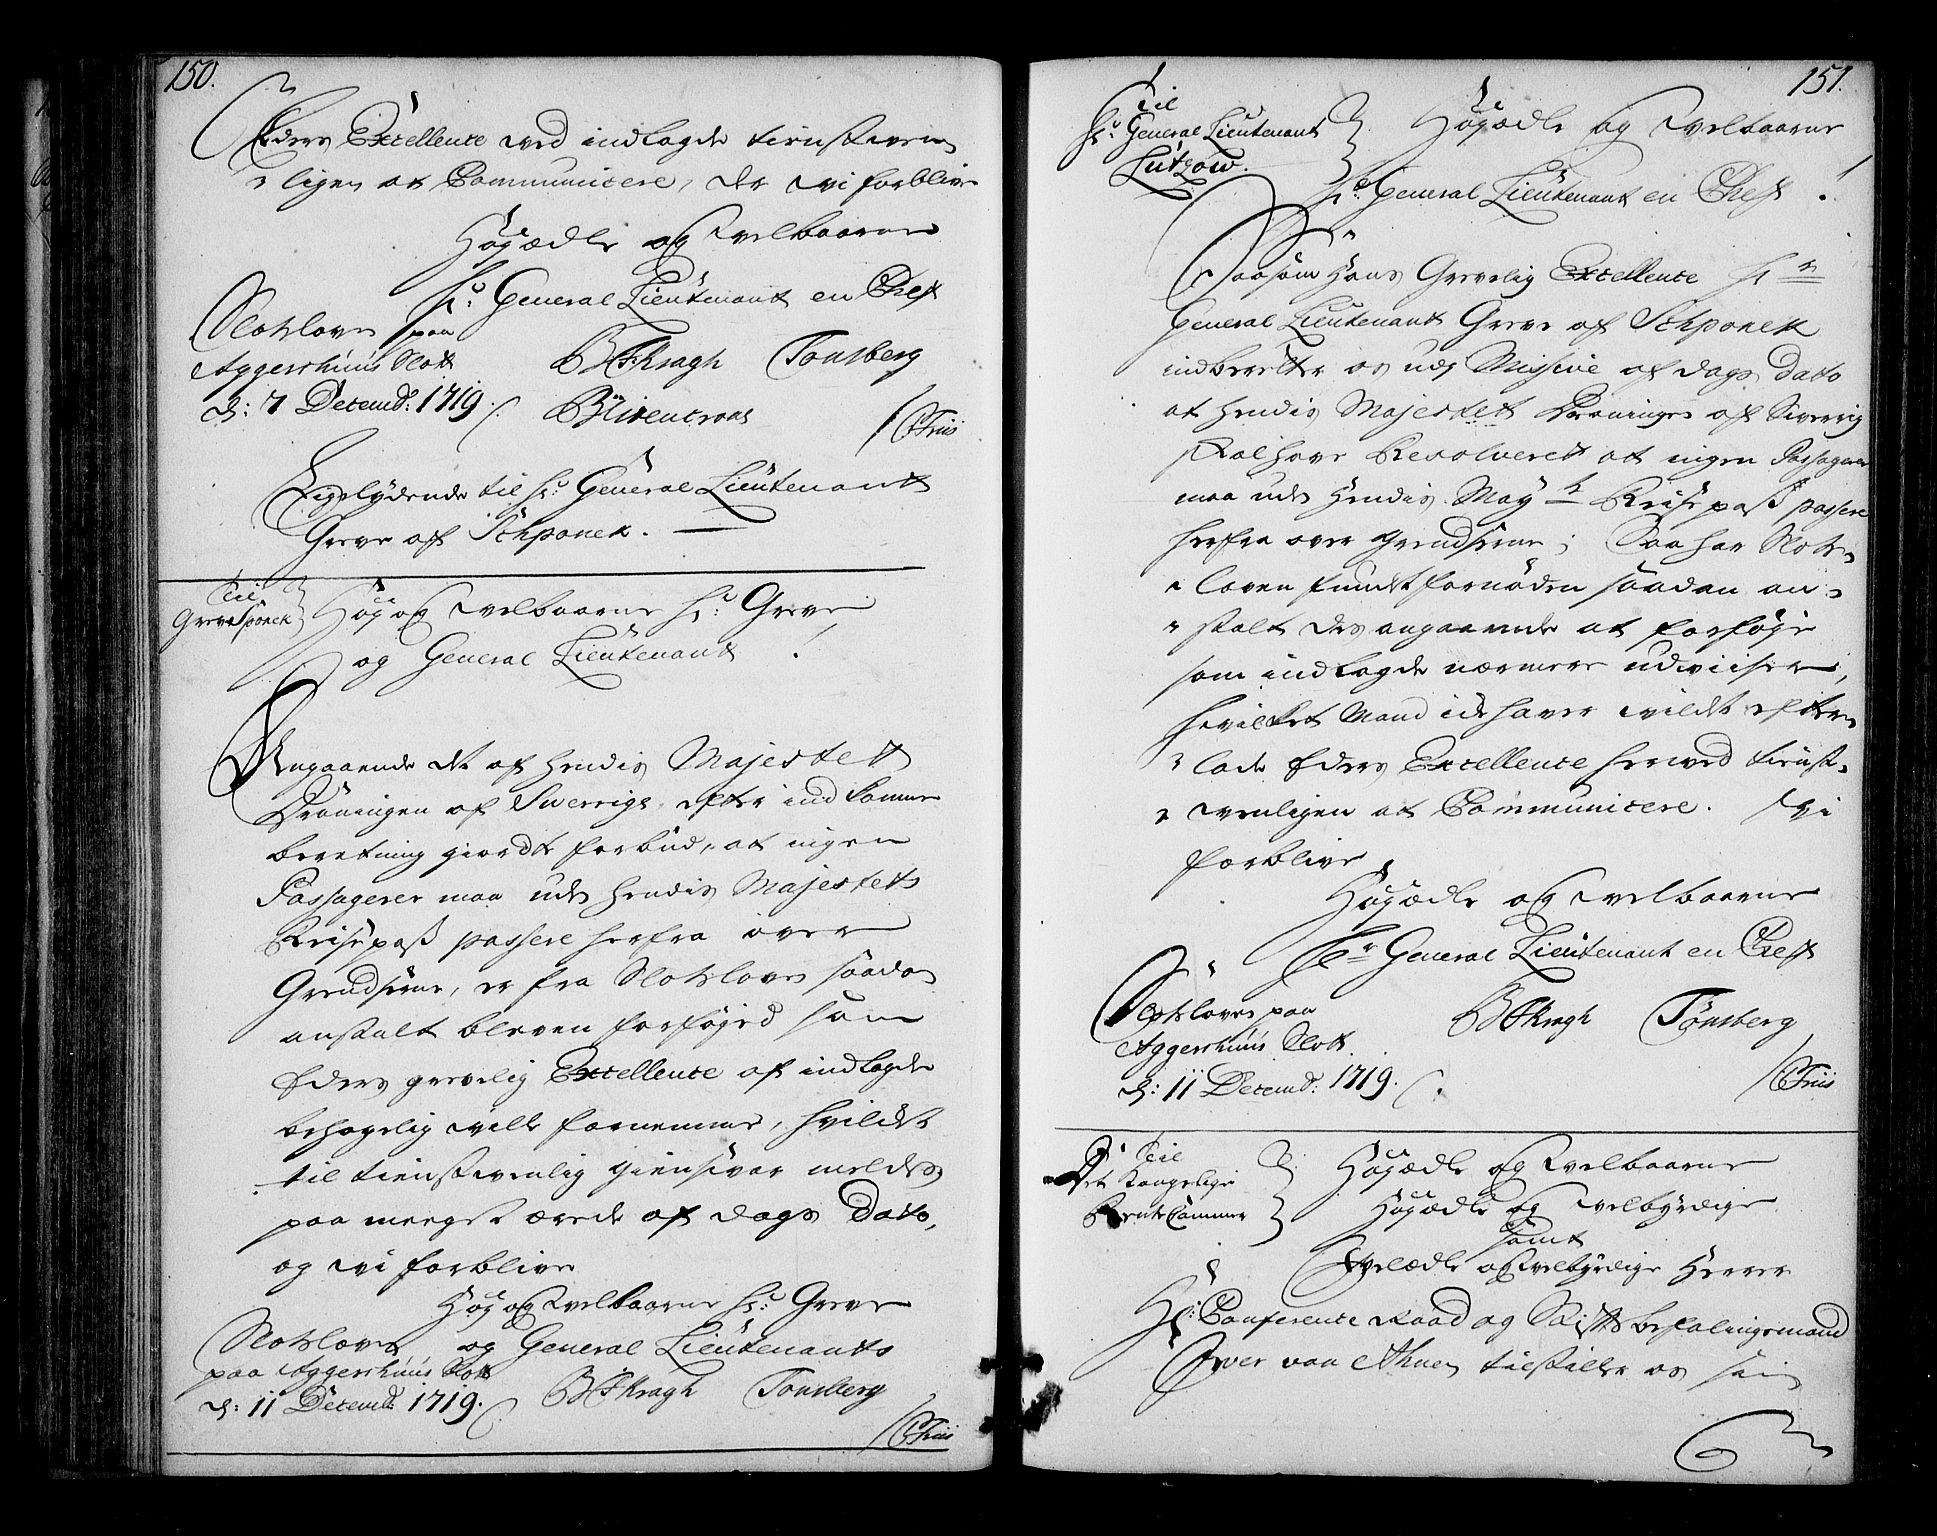 150.
Eders Excellence ved indlagde tienstven-
ligen at Communicere, der vi forblive
Høyædle og Welbaarne
Hr: General Lieutenant en Cheff
Slotzloven paa
Aggershuus Slott
d: 7 Decemb: 1719.
BHKragh Tonsberg
BLitencrons
/CFriis
Ligelydende til Hr: General Lieutenant
Greve af Schponek.
Til
Greve Sponek
Høy og Welbaarne Hr: Greve
og General Lieutenant !
Angaaende det af Hendis Majestet
Dronningen af Swerrige efter indkomne
beretning giordte forbud, at ingen
Passagerer maa uden Hendis Majestets
Reisepass passere herfra over
Grendserne, er fra Slotzloven saadan
anstalt bleven forføyed som
Eders grevelig Excellence af indlagde
behagelig ville fornemme, hvilcket
til tienstvenlig giensvar meldes
paa meeget ærede af dags Dato,
og vi forblive
Høy og Welbaarne Hr: Greve
og General Lieutenants
Slotzloven
paa Aggershuus Slott
d: 11 Decemb: 1719.
BHKragh Tonsberg
/CFriis
151.
Til
Hr: General Lieutenant
Lützow.
Høyædle og Welbaarne
Hr: General Lieutenant en Cheff !
Saasom Hans Grevelig Excellence Hr
General Lieutenant Greve af Schponek
indberetter os udj Missive af dags Dato
at Hendis Majestet Dronningen af Sverrig
skal have Resolveret at ingen Passagerer
maa uden Hendis Mayts Reisepass passere
herfra over Grendserne; Saa har Slotz-
loven fundet fornøden saadan an-
stalt des angaaende at forføye
som indlagde nærmere udviiser,
hvilcket Mand icke haver vildet efter-
lade Eders Excellence herved tienst-
venligen at Communicere. Vi
forblive
Høyædle og Welbaarne
Hr General Lieutenant en Cheff
Slotzloven paa
Aggershuus Slott
d: 11 Decemb: 1719.
BHKragh Tönsberg
/CFriis
Til
Det Kongelige
Rente Cammer
Høyædle og Welbaarne
Høyædle og Welbyrdige
samt
Velædle og Velbyrdige Herrer
Hr: Conference Raad og Stiftsbefalingsmand
Iver van Ahnen tilstillede os sin